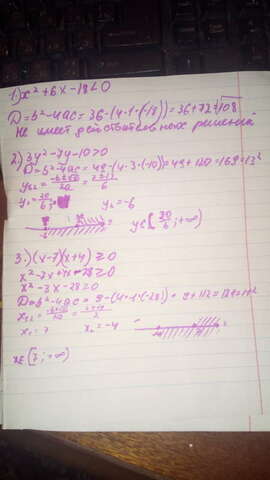 1) x² + 6x - 18 < 0
D = b² - 4ac = 36 - (4·1·(-18)) = 36 + 72 = √108
Не имеет действительных решений
2) 3y² - 7y - 10 > 0
D = b² - 4ac = 49 - (4·3·(-10)) = 49 + 120 = 169 = 13²
y₁ = 20/6; y₂ = -6
y ∈ [20/6; +∞)
3.) (x-7)(x+4) ≥ 0
x² - 7x + 4x - 28 ≥ 0
x² - 3x - 28 ≥ 0
D = b² - 4ac = 9 - (4·1·(-28)) = 9 + 112 = 121 = 11²
x₁ = 7 x₂ = -4
x ∈ [7; +∞)